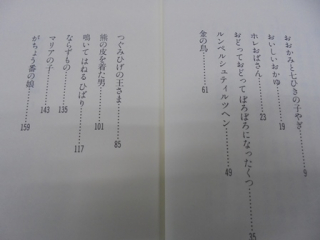 おおかみと七ひきの子やぎ……9
おいしいおかゆ……19
ホレおばさん……23
おどっておどってぼろぼろになったくつ……35
ルンペルシュティルツヘン……49
金の鳥……61
つぐみひげの王さま……85
熊の皮を着た男……101
鳴いてはねるひばり……117
ならずもの……135
マリアの子……143
がちょう番の娘……159